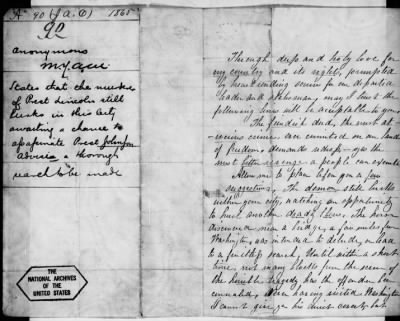 A 90 (J. A. O) 1865
90
Anonymous
States that the murderer
of Prest Lincoln still
lurks in this City
awaiting a chance to
assassinate Prest Johnson
Advises a thorough
search to be made
THE
NATIONAL ARCHIVES
OF THE
UNITED STATES
Through deep and holy love for
my country and its rights, prompted
by heart rending sorrow for our departed
leader and statesman, may I trust the
following lines will be acceptable to you.
The fiendish deed, the most
crime ever committed on our land
of freedom, demands redress - yes the
most bitter revenge a people can execute.
Allow me to place before you a few
suggestions. The demon still lurks
within your city, watching an opportunity
to hurl another deadly blow. The horse
discovered near a bridge, a few miles from
Washington, was intended to delude, or lead
to a fruitless search. Until within a short
time, not many blocks from the scene of
the horrible tragedy has the offender been
concealed. Never having visited Washington
I cannot give you his direct course but